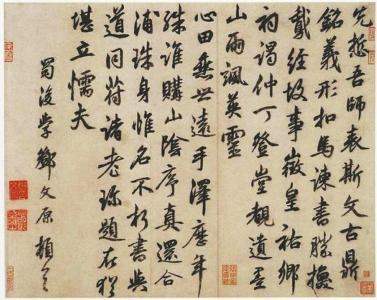 先哲吾師表斯文古鼎
銘義形扣馬諫書勝換
鵞經故事徵皇祐鄉
祠謁仲丁登堂觀遺墨
山雨颯英靈
心田垂世遠手澤歷年
殊誰購山陰序真還合
浦珠身惟名不朽書與
道同符諸老珎題在猶
堪立懦夫
蜀後學鄧文原頓首